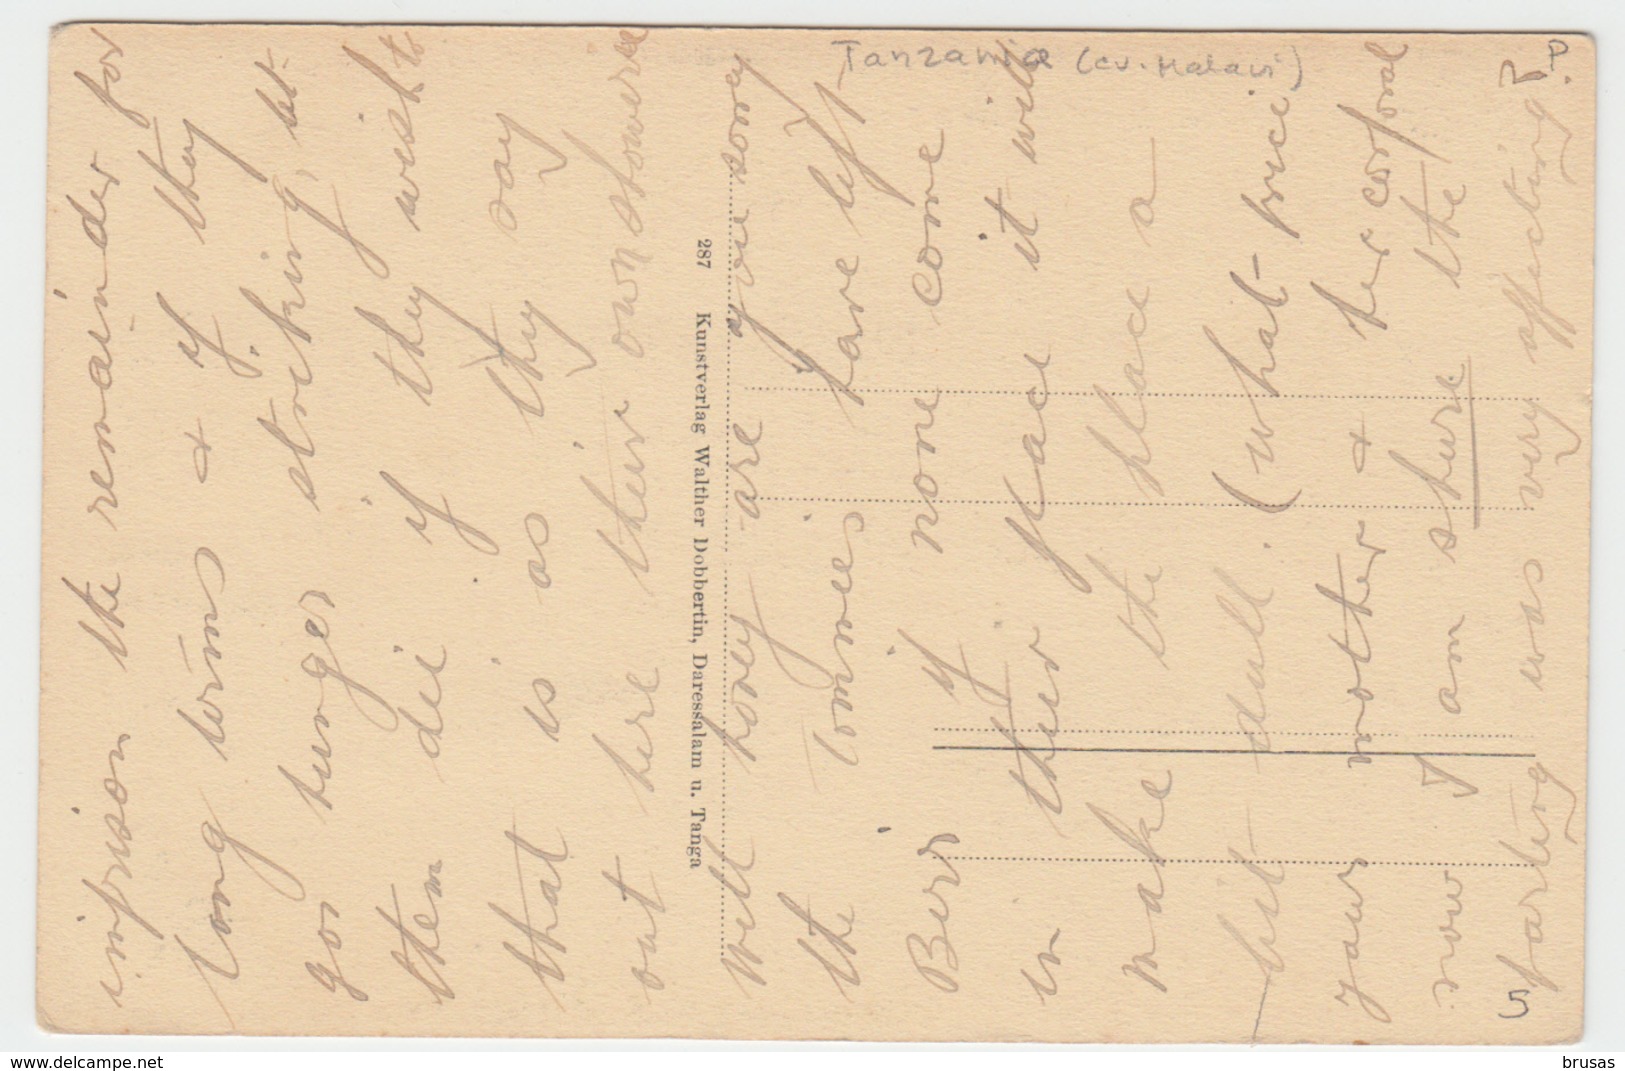 imprison the remainder for
long terms & if they
go hunger striking, let
them die if they wish to
that is as they say
out here their own showrie
287 Kunstverlag Walther Dobbertin, Daressalam u. Tanga
Well honey are you sorry
the Tommies have left
Beir if none come
in their place it will
make the place a
bit dull. (what price
your mother & her corporal
now I am sure the
parting was very affecting
Tanzania (cv. Malawi)
P.
5
delcampe.net
brusas